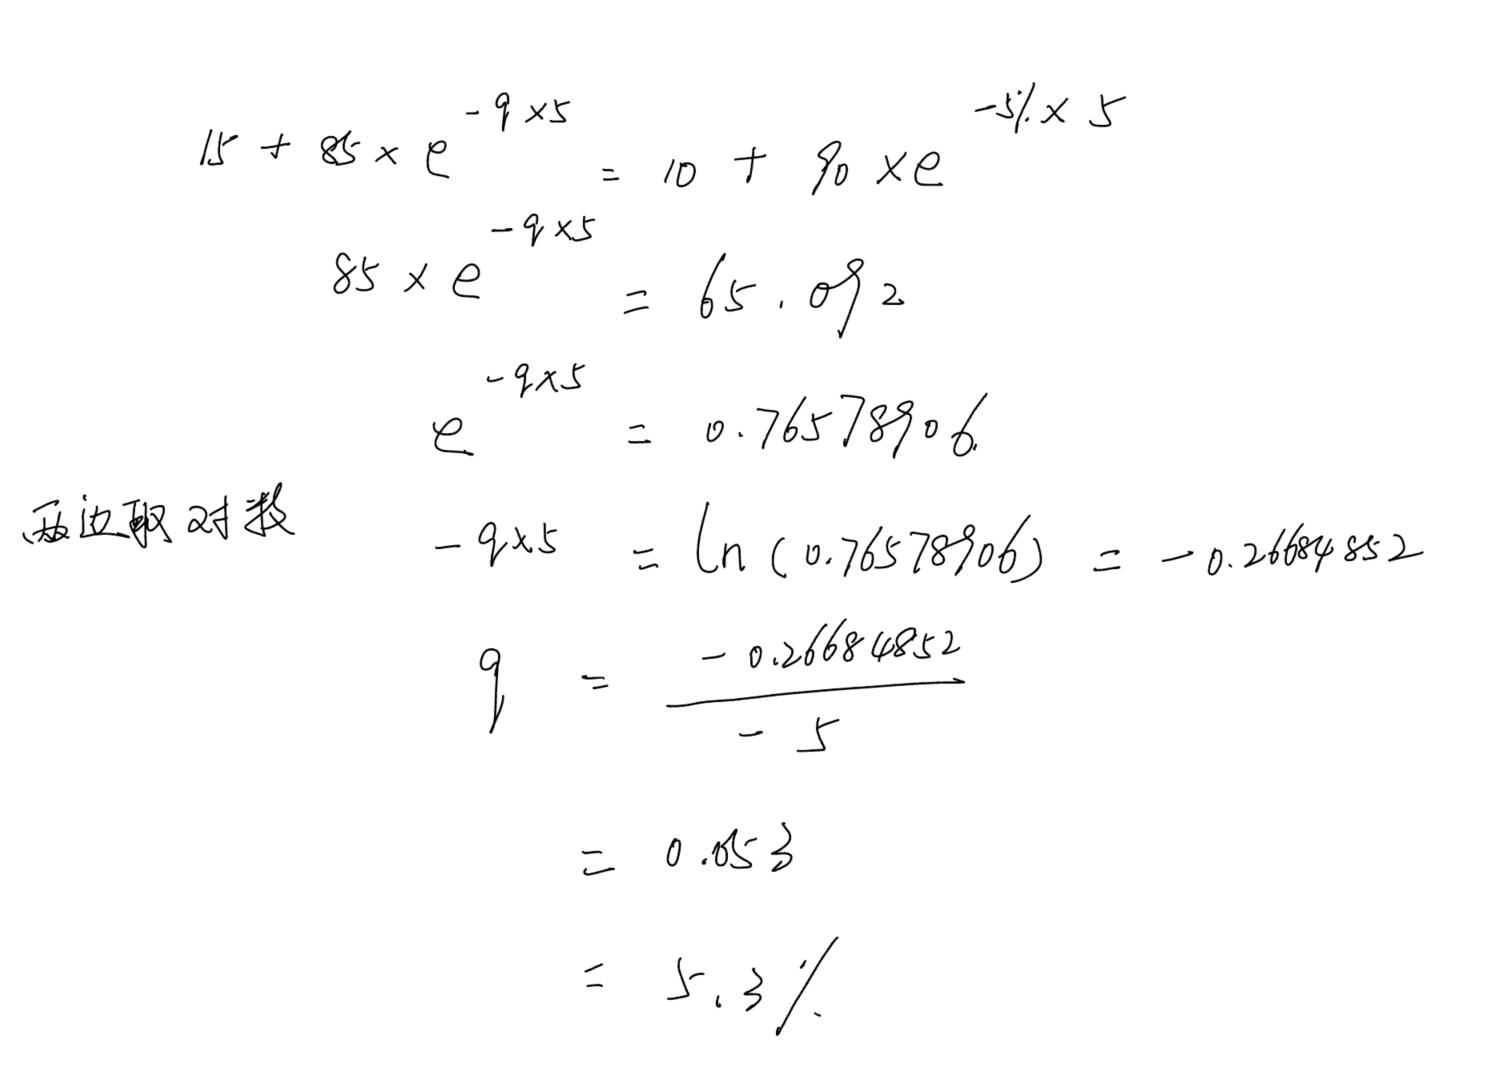 15 + 85 × e^{-q×5} = 10 + 90 × e^{-5%×5}
85 × e^{-q×5} = 65.092
e^{-q×5} = 0.76578906
两边取对数 -q×5 = ln(0.76578906) = -0.26684852
q = \frac{-0.26684852}{-5}
= 0.053
= 5.3%